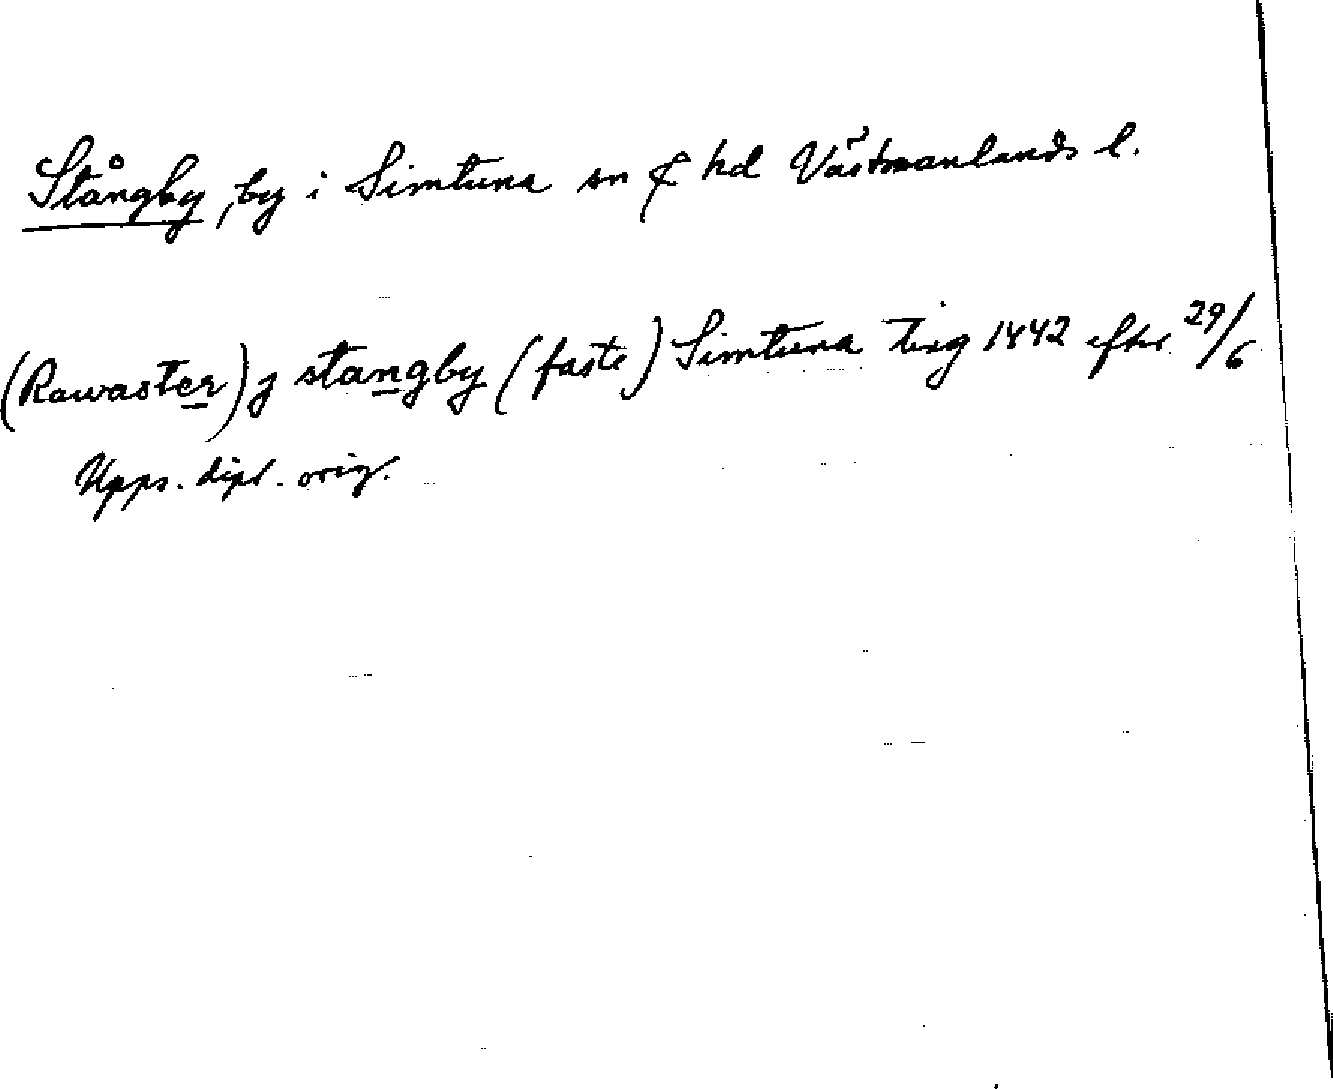 Stångby, by i Simtuna sn & hd Västmanlands l.
(Rawaster) j stangby (faste) Simtuna ting 1442 efter 29/6
Upps. dipl. orig.